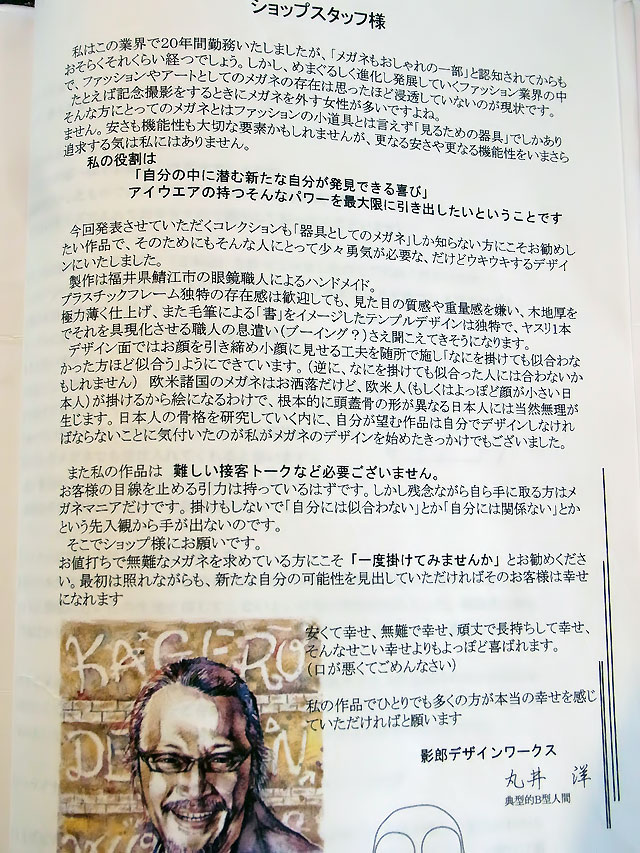 ショップスタッフ様
私はこの業界で20年間勤務いたしましたが、「メガネもおしゃれの一部」と認知されてからも
おそらくそれくらい経つでしょう。しかし、めまぐるしく進化し発展していくファッション業界の中
で、ファッションやアートとしてのメガネの存在は思ったほど浸透していないのが現状です。
たとえば記念撮影をするときにメガネを外す女性が多いですよね。
そんな方にとってのメガネとはファッションの小道具とは言えず「見るための器具」でしかあり
ません。安さも機能性も大切な要素かもしれませんが、更なる安さや更なる機能性をいまさら
追求する気は私にはありません。
私の役割は
「自分の中に潜む新たな自分が発見できる喜び」
アイウエアの持つそんなパワーを最大限に引き出したいということです
今回発表させていただくコレクションも「器具としてのメガネ」しか知らない方にこそお勧めし
たい作品で、そのためにもそんな人にとって少々勇気が必要な、だけどウキウキするデザイ
ンにいたしました。
製作は福井県鯖江市の眼鏡職人によるハンドメイド。
プラスチックフレーム独特の存在感は歓迎しても、見た目の質感や重量感を嫌い、木地厚を
極力薄く仕上げ、また毛筆による「書」をイメージしたテンプルデザインは独特で、ヤスリ1本
でそれを具現化させる職人の息遣い(ブーイング?)さえ聞こえてきそうになります。
デザイン面ではお顔を引き締め小顔に見せる工夫を随所で施し「なにを掛けても似合わな
かった方ほど似合う」ようにできています。(逆に、なにを掛けても似合った人には合わないか
もしれません) 欧米諸国のメガネはお洒落だけど、欧米人(もしくはよっぽど顔が小さい日
本人)が掛けるから絵になるわけで、根本的に頭蓋骨の形が異なる日本人には当然無理が
生じます。日本人の骨格を研究していく内に、自分が望む作品は自分でデザインしなけれ
ばならないことに気付いたのが私がメガネのデザインを始めたきっかけでもございました。
また私の作品は 難しい接客トークなど必要ございません。
お客様の目線を止める引力は持っているはずです。しかし残念ながら自ら手に取る方はメ
ガネマニアだけです。掛けもしないで「自分には似合わない」とか「自分には関係ない」とか
という先入観から手が出ないのです。
そこでショップ様にお願いです。
お値打ちで無難なメガネを求めている方にこそ「一度掛けてみませんか」とお勧めくださ
い。最初は照れながらも、新たな自分の可能性を見出していただければそのお客様は幸せ
になれます
安くて幸せ、無難で幸せ、頑丈で長持ちして幸せ、
そんなせこい幸せよりもよっぽど喜ばれます。
(口が悪くてごめんなさい)
私の作品でひとりでも多くの方が本当の幸せを感じ
ていただければと願います
影郎デザインワークス
丸井 洋
典型的B型人間
KAGERO